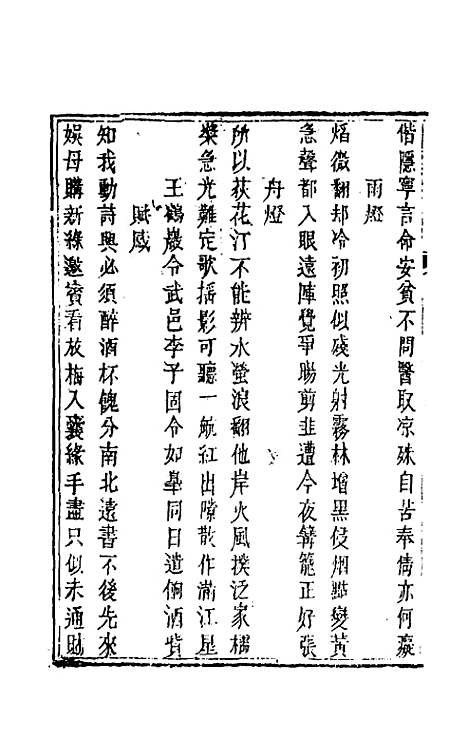 偕隱寧言命安貧不問醫取凉殊自苦奉倩亦何癡
雨燈
焰微翻却冷初照似殘光射霧林增黑侵烟點變黃
急聲都入眼遠陣覺爭腸剪韭遭今夜篝籠正好張
舟燈
所以荻花汀不能辨水螢浪翻他岸火風撲泛家櫺
槳急光難定歌搖影可聽一航紅出隙散作滿江星
王鶴巖令武邑李子固令如皋同日遣餉酒貲
賦感
知我動詩興必須醉酒杯俸分南北遠書不後先來
娛母購新綵邀賓看放梅入囊緣手盡只似未通財